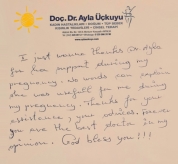 Doç. Dr. Ayla Üçkuyu
KADIN HASTALIKLARI - DOĞUM - TÜP BEBEK
I just wanna thanks Dr Ayla
for her support during my
pregnancy. No words can explain
she was usefull for me during
my pregnancy. Thanks for your
assistance, your advices.
you are the best doctor in my
opinion. God bless you!!!